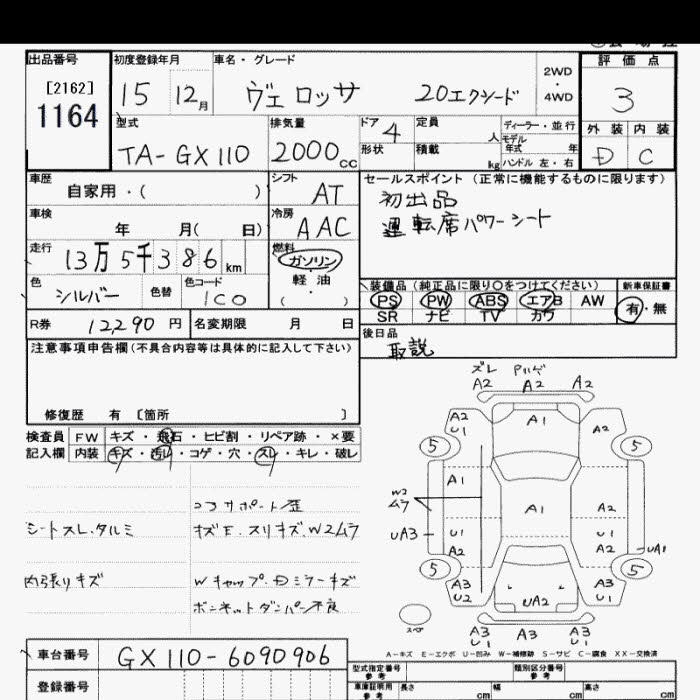 出品番号
[2162]
1164
初度登録年月
15 12月
車名・グレード
ヴェロッサ 20エクシード
2WD
・
4WD
評価点
3
外装 内装
D C
型式
TA-GX110
排気量
2000cc
ドア 4
形状
定員 人
積載 kg
ディーラー・並行
モデル年式 年
ハンドル 左・右
車歴
自家用・( )
シフト
AT
車検
年 月( 日)
冷房
AAC
走行
13万5千386km
燃料
ガソリン
軽油
( ・ )
色
シルバー
色替
色コード
1C0
セールスポイント(正常に機能するものに限ります)
初出品
運転席パワーシート
装備品(純正品に限り○をつけてください)
PS PW ABS エアB AW
SR ナビ TV カワ
新車保証書
有・無
R券 12290円 名変期限 月 日
後日品
取説
注意事項申告欄(不具合内容等は具体的に記入して下さい)
修復歴 有 [箇所 ]
検査員 FW キズ・飛石・ヒビ割・リペア跡・×要
記入欄 内装 キズ・汚れ・コゲ・穴・スレ・キレ・破レ
シートスレ.タルミ
内張りキズ
コアサポート歪
キズE.スリキズ.W2ムラ
Wキャップ.Dミラーキズ
ボンネットダンパー不良
ズレ
A2 A2 A2
A2
U1
A1
A2
5
5
A1
W2
ムラ
A1
A2
UA3
U1
A2
A2
UA1
5
5
A3
U2
UA2
A3
U1
スペア
A3
U1
A3
A3
U1
A-キズ E-エクボ U-凹み W-補修跡 S-サビ C-腐食 XX-交換済
車台番号
GX110-6090906
登録番号
型式指定番号
参考
類別区分番号
参考
車庫証明用
参考
長さ cm
幅 cm
高さ cm